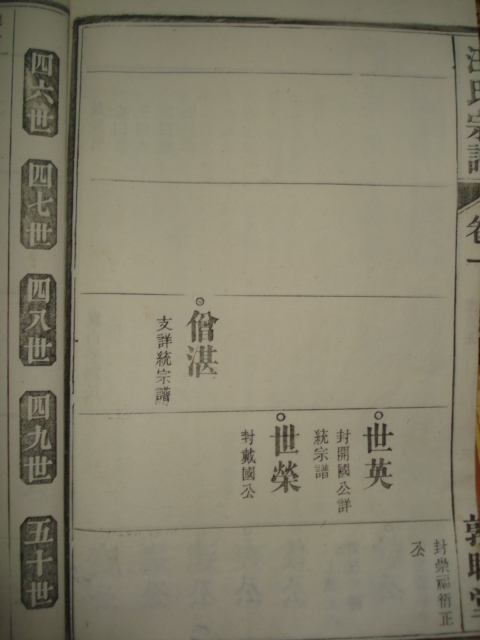 汪氏宗譜
卷一
敦睦堂
公
世英
封開國公詳
統宗譜
世榮
封戴國公
僧湛
支詳統宗譜
四六世
四七世
四八世
四九世
五十世